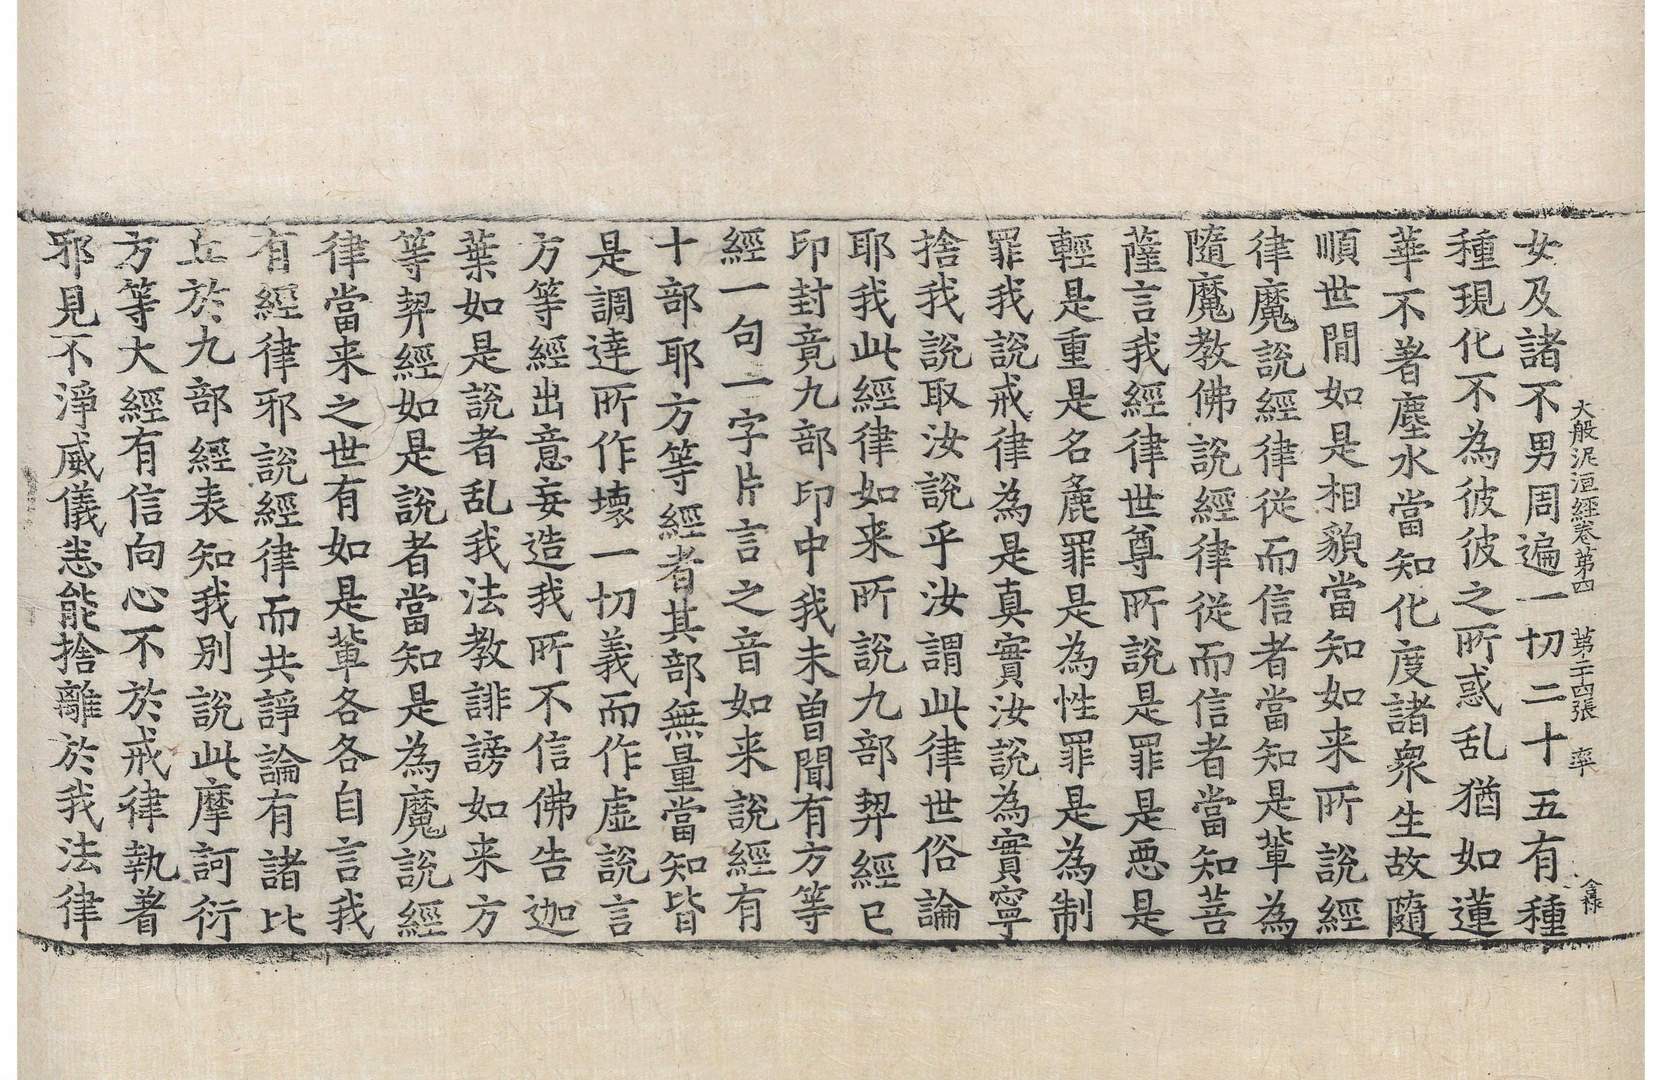 大般泥洹經卷第四 第二十四張 率
女及諸不男周遍一切二十五有種
種現化不為彼彼之所惑乱猶如蓮
華不著塵水當知化度諸衆生故隨
順世閒如是相貌當知如来所說經
律魔說經律從而信者當知是輩為
隨魔教佛說經律從而信者當知菩
薩言我經律世尊所說是罪是惡是
輕是重是名麁罪是為性罪是為制
罪我說戒律為是真實汝說為實寧
捨我說取汝說乎汝謂此律世俗論
耶我此經律如来所說九部契經已
印封竟九部印中我未曾聞有方等
經一句一字片言之音如来說經有
十部耶方等經者其部無量當知皆
是調達所作壞一切義而作虛說言
方等經出意妄造我所不信佛告迦
葉如是說者乱我法教誹謗如来方
等契經如是說者當知是為魔說經
律當来之世有如是輩各各自言我
有經律邪說經律而共諍論有諸比
丘於九部經表知我別說此摩訶衍
方等大經有信向心不於戒律執著
邪見不淨威儀悉能捨離於我法律